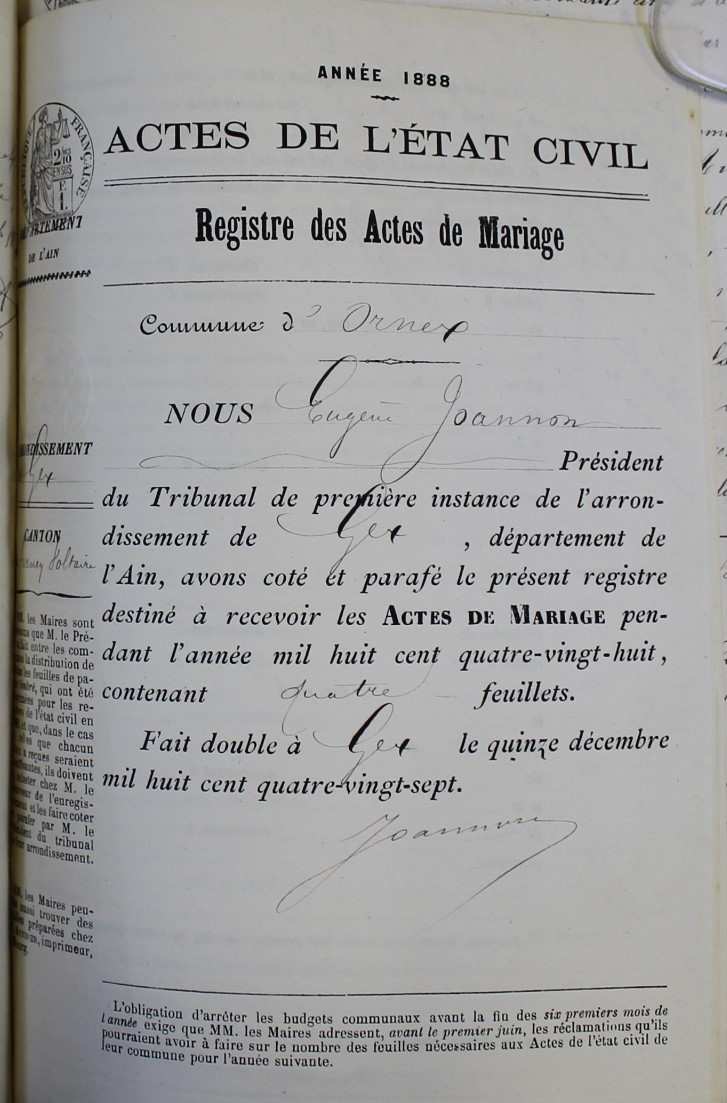 ANNÉE 1888
ACTES DE L'ÉTAT CIVIL
FRANÇAISE
2/10
DE L'AIN
Registre des Actes de Mariage
Commune d'Ornex
NOUS Eugène Joannon
Président
du Tribunal de première instance de l'arron-
dissement de Gex, département de
l'Ain, avons coté et parafé le présent registre
destiné à recevoir les ACTES DE MARIAGE pen-
dant l'année mil huit cent quatre-vingt-huit,
contenant quatre feuillets.
Fait double à Gex le quinze décembre
mil huit cent quatre-vingt-sept.
Joannon
Gex
CANTON
Voltaire
les Maires sont
que M. le Pré-
entre les com-
la distribution de
feuilles de pa-
qui ont été
pour les re-
de l'état civil en
et que, dans le cas
que chacun
reçues seraient
ils doivent
chez M. le
de l'enregis-
et les faire coter
par M. le
du tribunal
arrondissement.
les Maires peu-
aussi trouver des
préparées chez
imprimeur,
L'obligation d'arrêter les budgets communaux avant la fin des six premiers mois de
l'année exige que MM. les Maires adressent, avant le premier juin, les réclamations qu'ils
pourraient avoir à faire sur le nombre des feuilles nécessaires aux Actes de l'état civil de
leur commune pour l'année suivante.